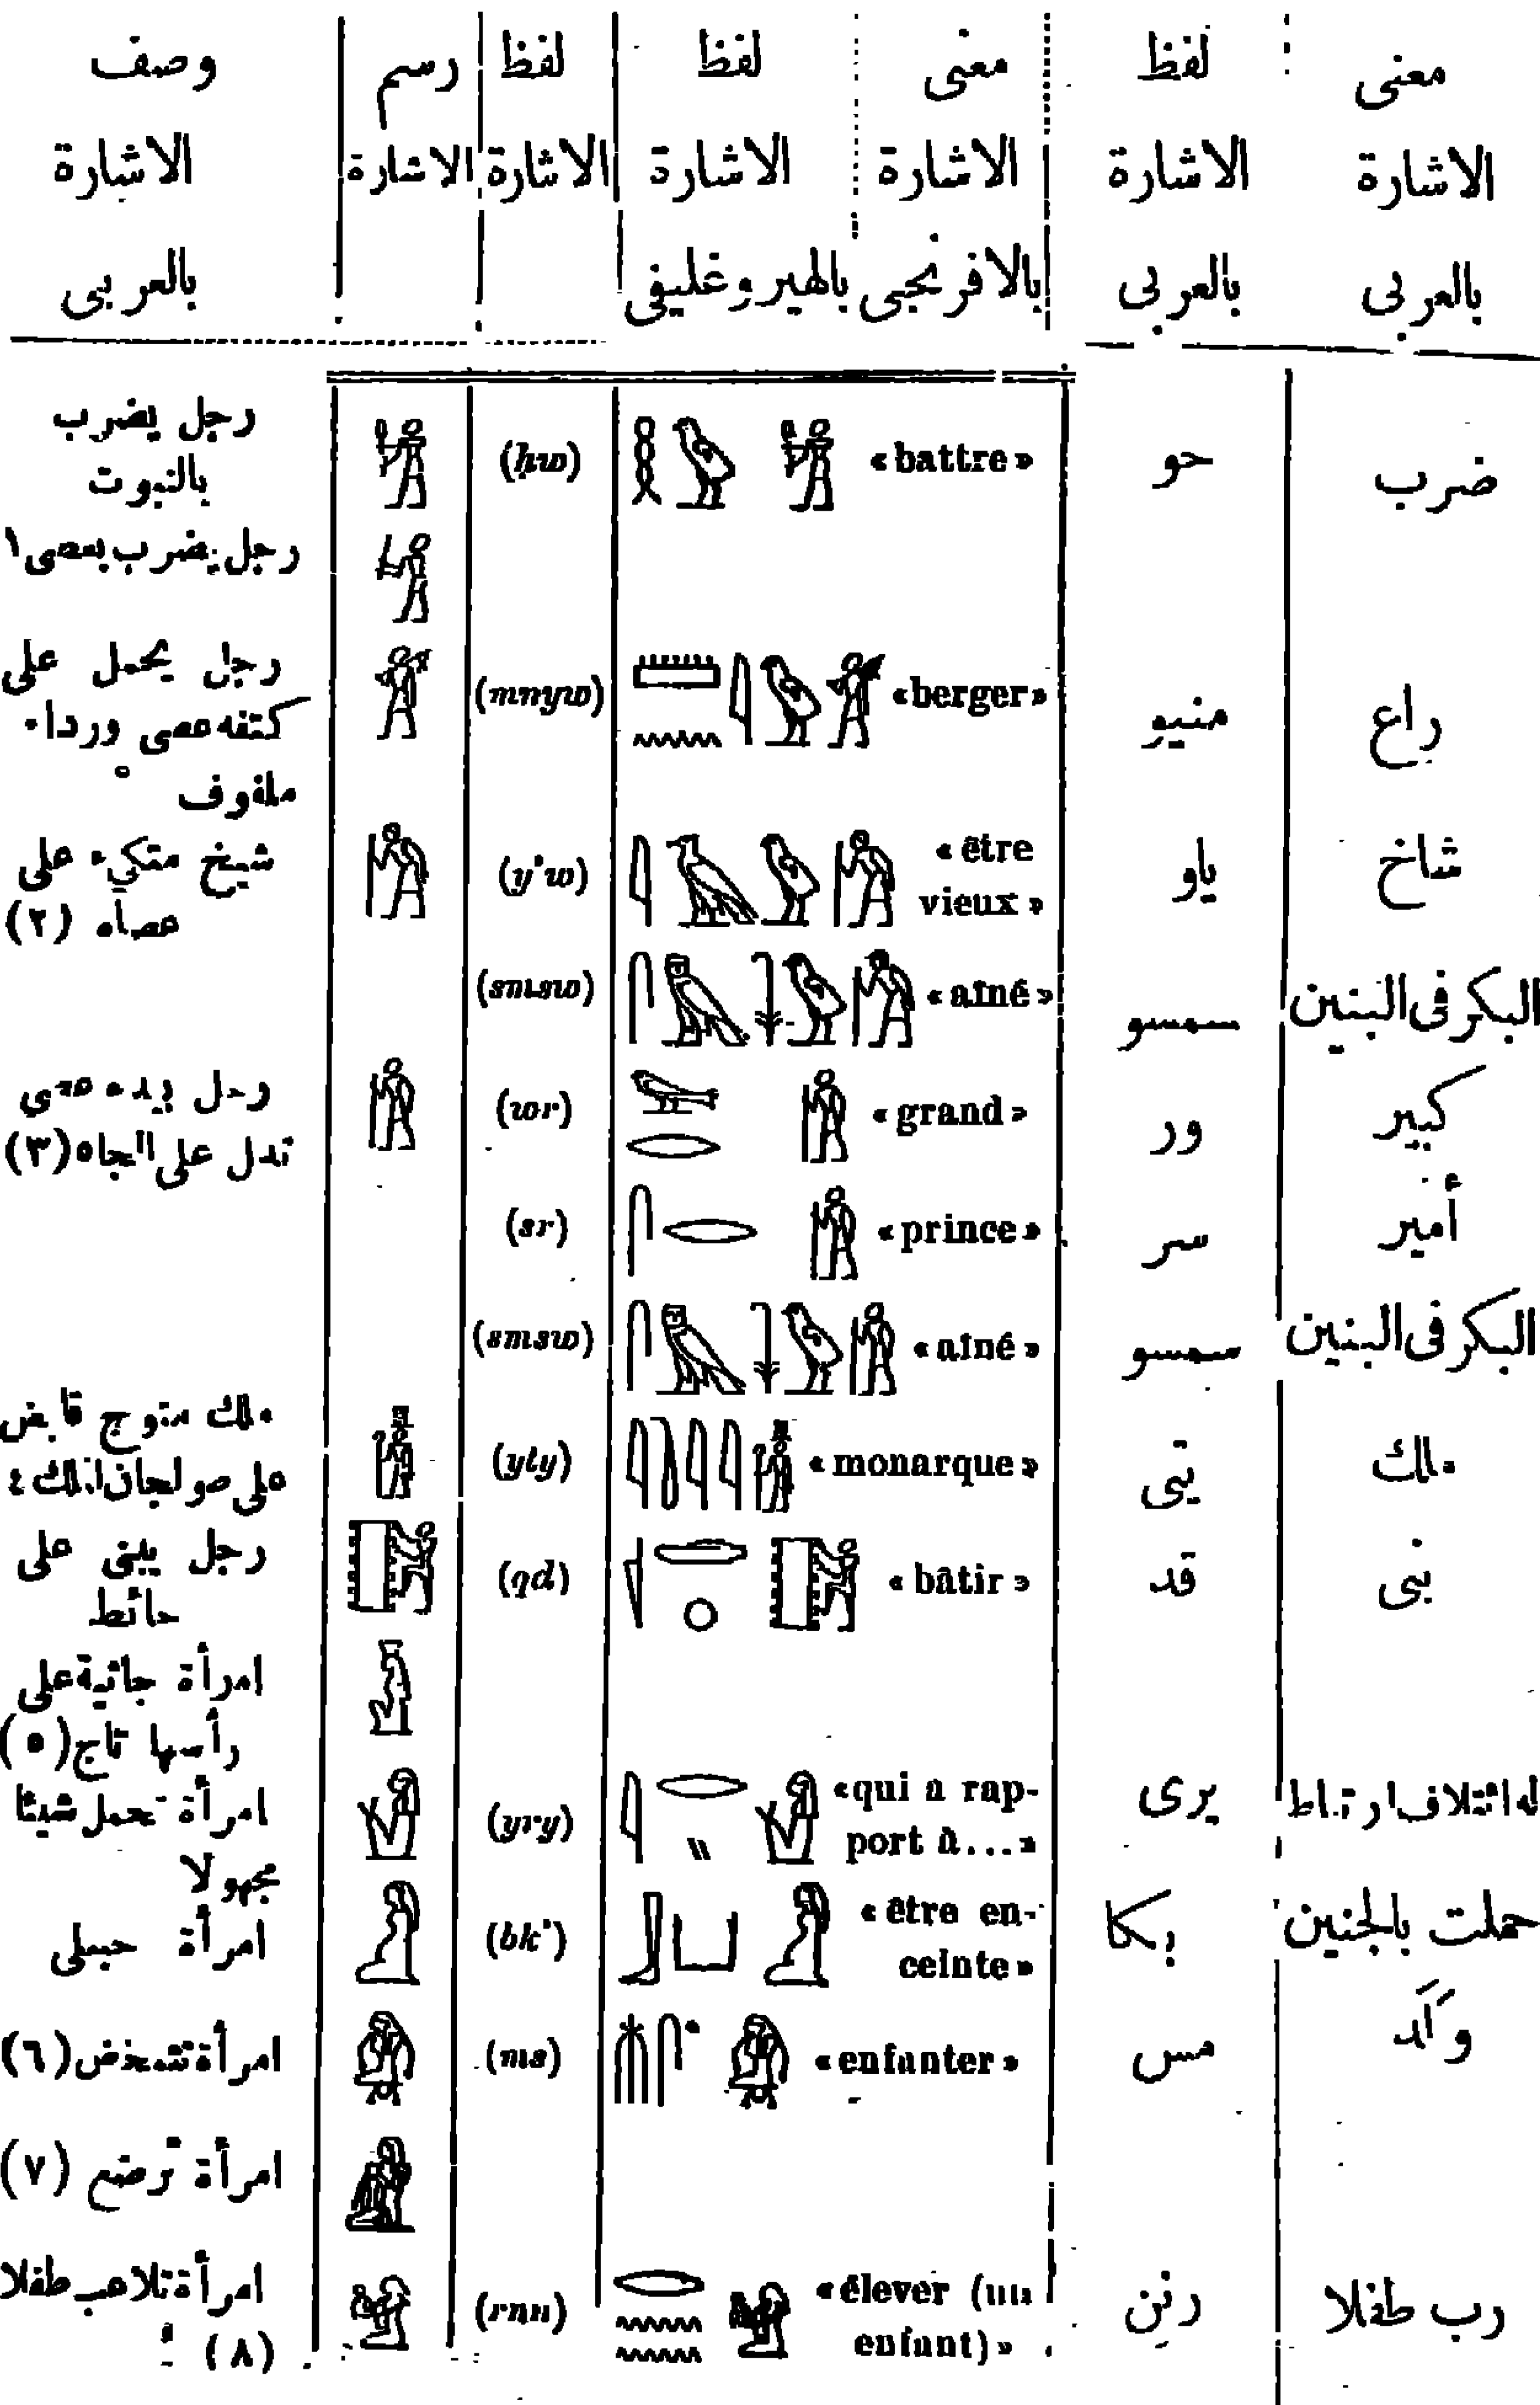 معنى لفظ معنى لفظ لفظ رسم وصف
الاشارة الاشارة الاشارة الاشارة الاشارة الاشارة الاشارة
بالعربى بالعربى بالافرنجى بالهيروغليفى بالعربى
ضرب حو «battre» (ḥw) رجل يضرب
بالنبوت
رجل يضرب بعصى ١
راع منيو «berger» (mnyw) رجل يحمل على
كتفه عصى ورداء
ملفوف
شاخ ياو «être (y'w) شيخ متكىء على
vieux» عصاه (٢)
البكر فى البنين سمسو «aîné» (smsw)
كبير ور «grand» (wr) رجل بيده عصى
تدل على الجاه (٣)
أمير سر «prince» (sr)
البكر فى البنين سمسو «aîné» (smsw)
ملك يتى «monarque» (yty) ملك متوج قابض
على صولجان الملك ٤
بنى قد «bâtir» (qd) رجل يبنى على
حائط
امرأة جاثية على
رأسها تاج (٥)
له ائتلاف ارتباط يرى «qui a rap- (yry) امرأة تحمل شيئا
port à...» مجهولا
حملت بالجنين بكا «être en- (bk') امرأة حبلى
ceinte»
وَلَد مس «enfanter» (ms) امرأة تتمخض (٦)
امرأة ترضع (٧)
رب طفلا رنن «élever (un (rnn) امرأة تلاعب طفلا
enfant)» (٨)